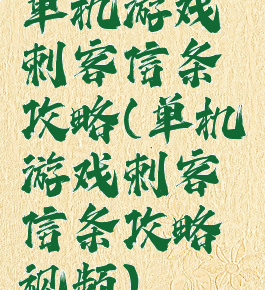 单机游戏
刺客信条
攻略(单机
游戏刺客
信条攻略
视频)